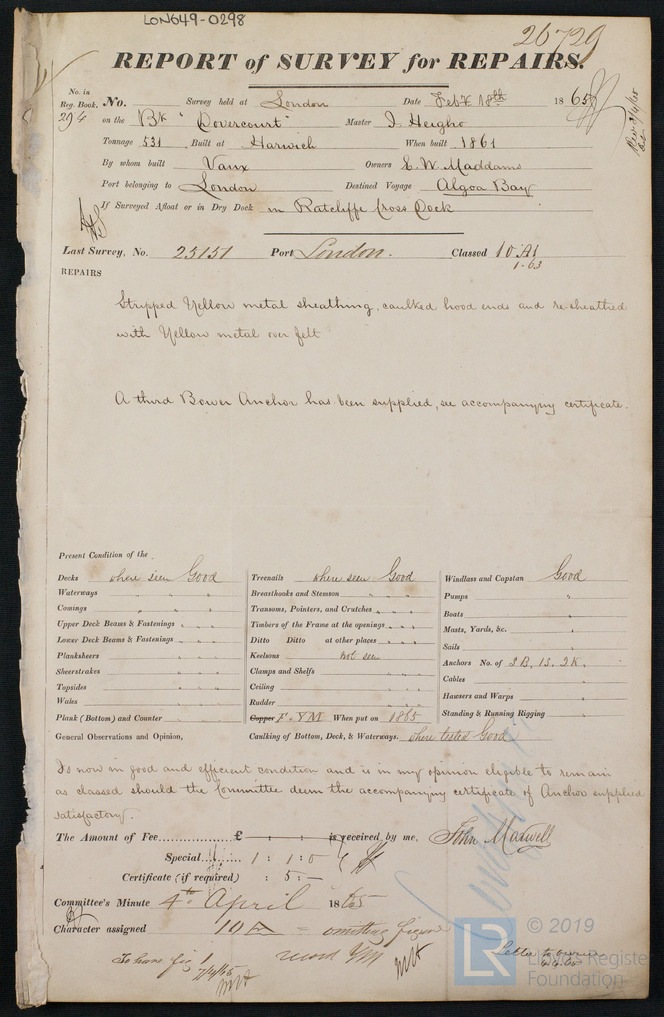 LON649-0298
26729
REPORT of SURVEY for REPAIRS.
No. in Reg. Book. No. Survey held at London Date Feby 18th 1865
294 on the Bk "Dovercourt" Master J. Heigho
Tonnage 531 Built at Harwich When built 1861
By whom built Vaux Owners E. W. Maddams
Port belonging to London Destined Voyage Algoa Bay
If Surveyed Afloat or in Dry Dock in Ratcliffe Cross Dock
Last Survey, No. 25151 Port London. Classed 10 A1
1.63
REPAIRS
Stripped Yellow metal sheathing, caulked hood ends and re-sheathed
with Yellow metal over felt
A third Bower Anchor has been supplied, see accompanying certificate.
Present Condition of the
Decks where seen Good Treenails where seen Good Windlass and Capstan Good
Waterways " " " Breasthooks and Stemson " " " Pumps "
Comings " " " Transoms, Pointers, and Crutches " " " Boats "
Upper Deck Beams & Fastenings " " " Timbers of the Frame at the openings " " " Masts, Yards, &c. "
Lower Deck Beams & Fastenings " " " Ditto Ditto at other places " " " Sails "
Planksheers " " " Keelsons not seen Anchors No. of 3B, 1S, 2K.
Sheerstrakes " " " Clamps and Shelfs " " " Cables "
Topsides " " " Ceiling " " " Hawsers and Warps "
Wales " " " Rudder " " " Standing & Running Rigging "
Plank (Bottom) and Counter " " " Copper F. YM When put on 1865
General Observations and Opinion, Caulking of Bottom, Deck, & Waterways. where tested Good
Is now in good and efficient condition and is in my opinion eligible to remain
as classed should the Committee deem the accompanying certificate of Anchor supplied
satisfactory.
The Amount of Fee £ : : is received by me, John Maxwell
Special 1 : 1 : 0
Certificate (if required) : 5 : –
Committee's Minute 4th April 1865
Character assigned 10 A = omitting figure
To have fig 1 record YM Letter to owner
7/4/65 6.4.65
© 2019
LR Lloyd's Register
Foundation